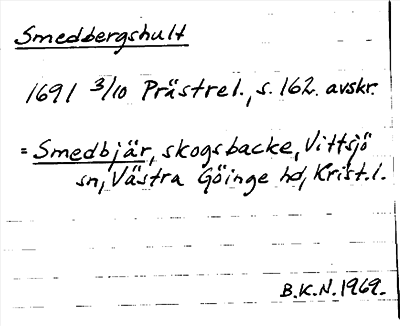 Smedbergshult
1691 3/10 Prästrel., s. 162. avskr.
= Smedbjär, skogsbacke, Vittsjö
sn, Västra Göinge hd, Krist. l.
B.K.N. 1969.